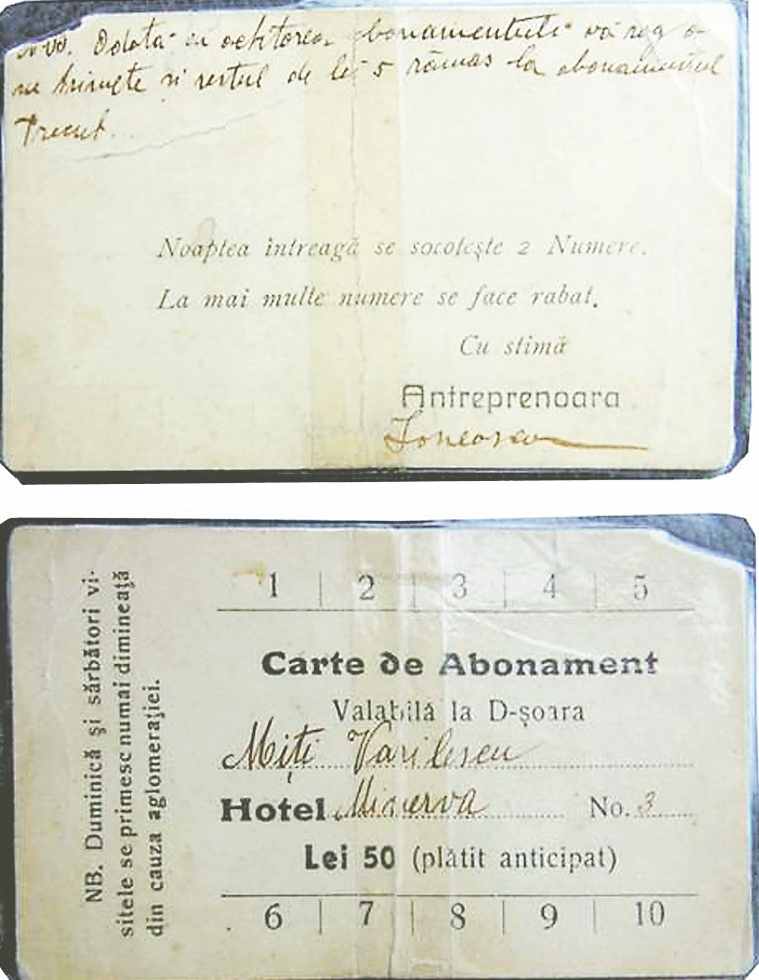 Odata cu achitarea abonamentului vă rog a-
mi trimete si restul de lei 5 rămas la abonamentul
trecut.
Noaptea întreagă se socotește 2 Numere.
La mai multe numere se face rabat.
Cu stimă
Antreprenoara
Ionescu
NB. Duminică și sărbători vi-
sitele se primesc numai dimineață
din cauza aglomerației.
1 | 2 | 3 | 4 | 5
Carte de Abonament
Valabilă la D-șoara
Miți Vasilescu
Hotel Minerva No. 3
Lei 50 (plătit anticipat)
6 | 7 | 8 | 9 | 10